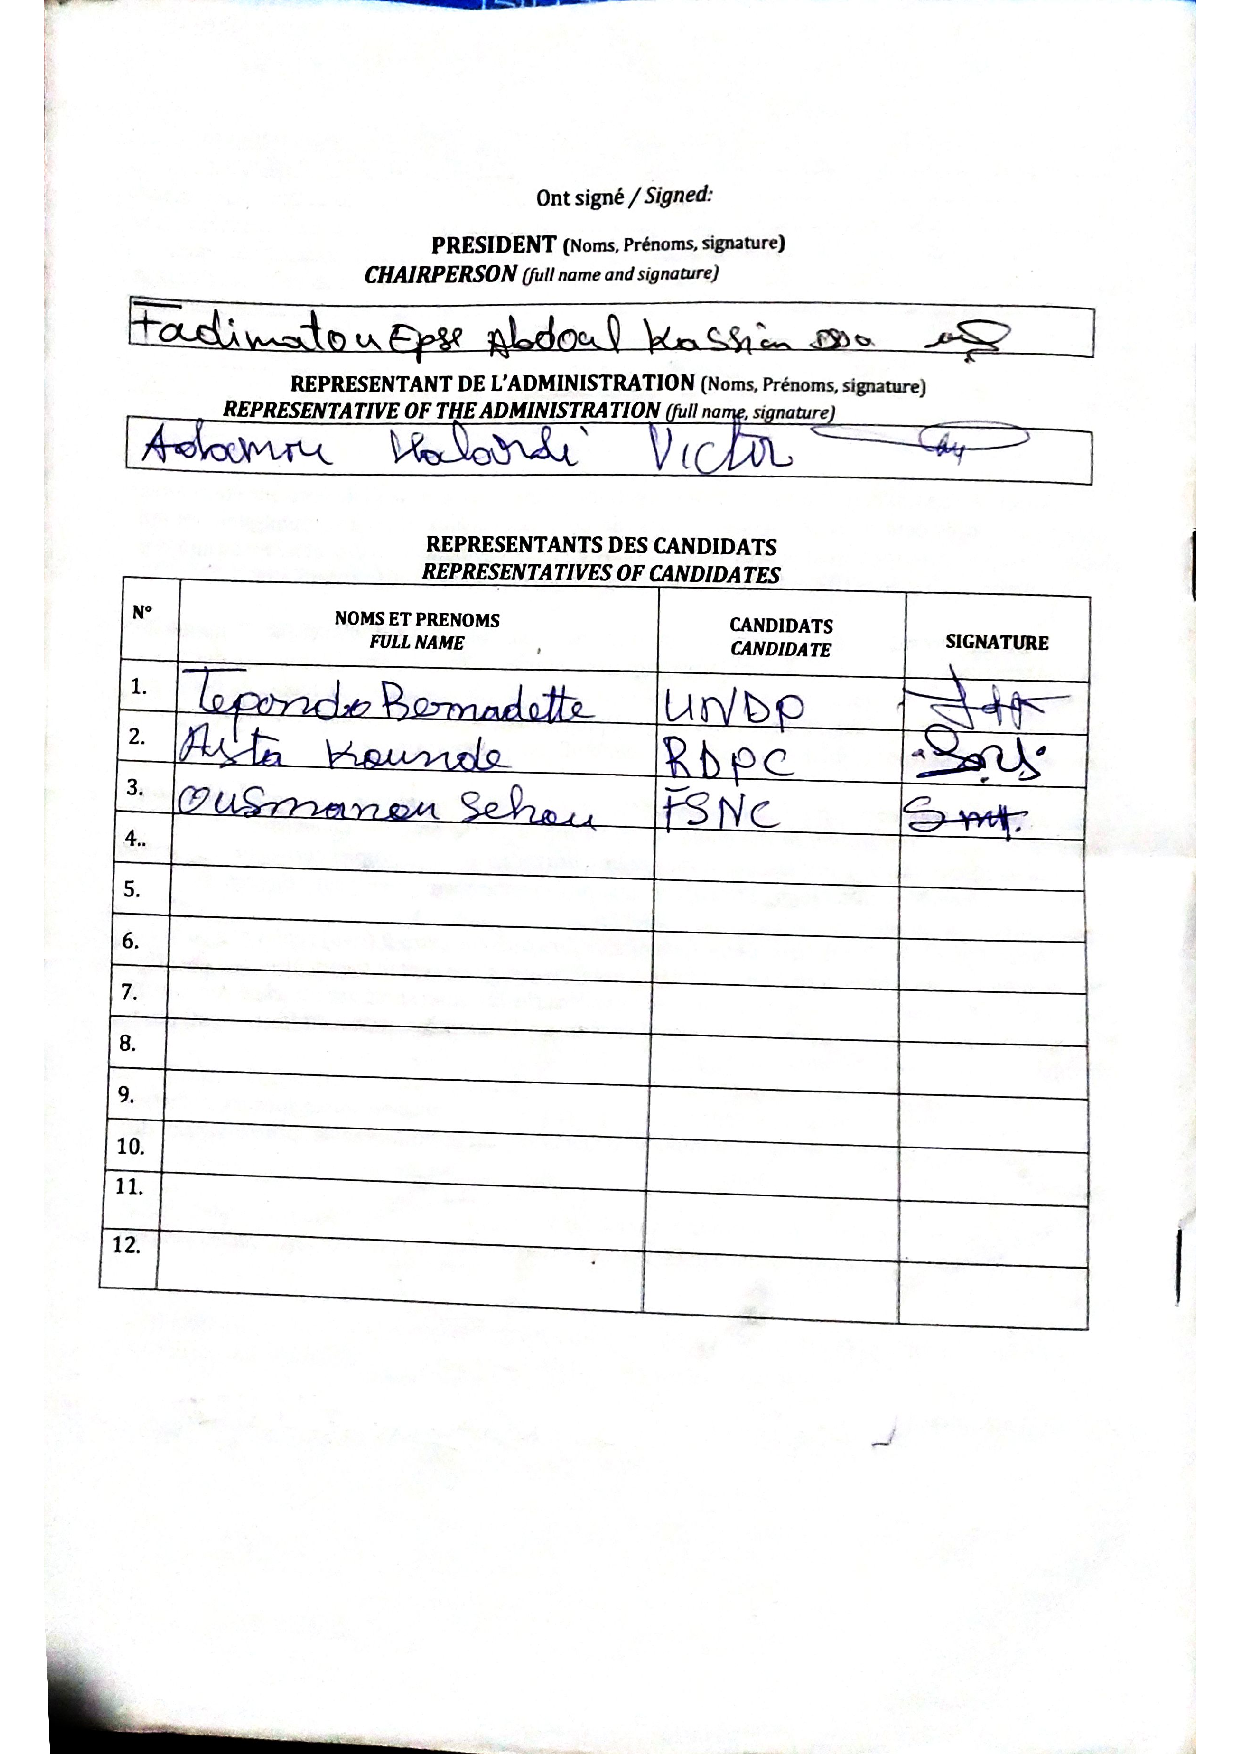 Ont signé / Signed:
PRESIDENT (Noms, Prénoms, signature)
CHAIRPERSON (full name and signature)
Fadimatou Epse Abdoul Kassim
REPRESENTANT DE L'ADMINISTRATION (Noms, Prénoms, signature)
REPRESENTATIVE OF THE ADMINISTRATION (full name, signature)
Adamou Victor
REPRESENTANTS DES CANDIDATS
REPRESENTATIVES OF CANDIDATES
N° NOMS ET PRENOMS CANDIDATS SIGNATURE
FULL NAME CANDIDATE
1. Tepondo Bernadette UNDP
2. Aista Kounde RDPC
3. Ousmanou Sehou FSNC
4..
5.
6.
7.
8.
9.
10.
11.
12.